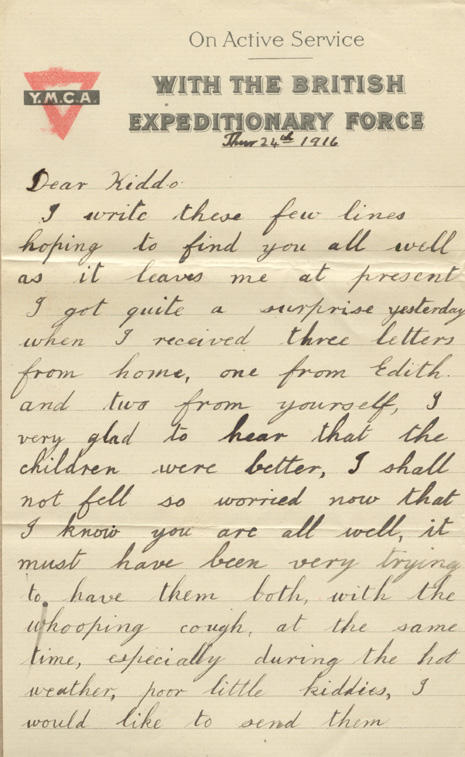 On Active Service
Y.M.C.A.
WITH THE BRITISH
EXPEDITIONARY FORCE
Thur 24th 1916
Dear Kiddo
I write these few lines
hoping to find you all well
as it leaves me at present
I got quite a surprise yesterday
when I received three letters
from home, one from Edith.
and two from yourself, I
very glad to hear that the
children were better, I shall
not fell so worried now that
I know you are all well, it
must have been very trying
to have them both, with the
whooping cough, at the same
time, especially during the hot
weather, poor little kiddies, I
would like to send them